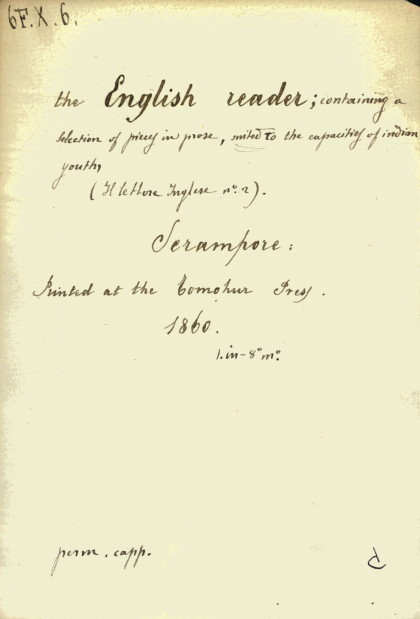 6F.X.6.
the English reader; containing a
selection of pieces in prose, suited to the capacities of indian
youth,
(Il lettore Inglese n.º 2).
Serampore:
Printed at the Tomohur Press.
1860.
1. in-8º mº.
perm. capp.